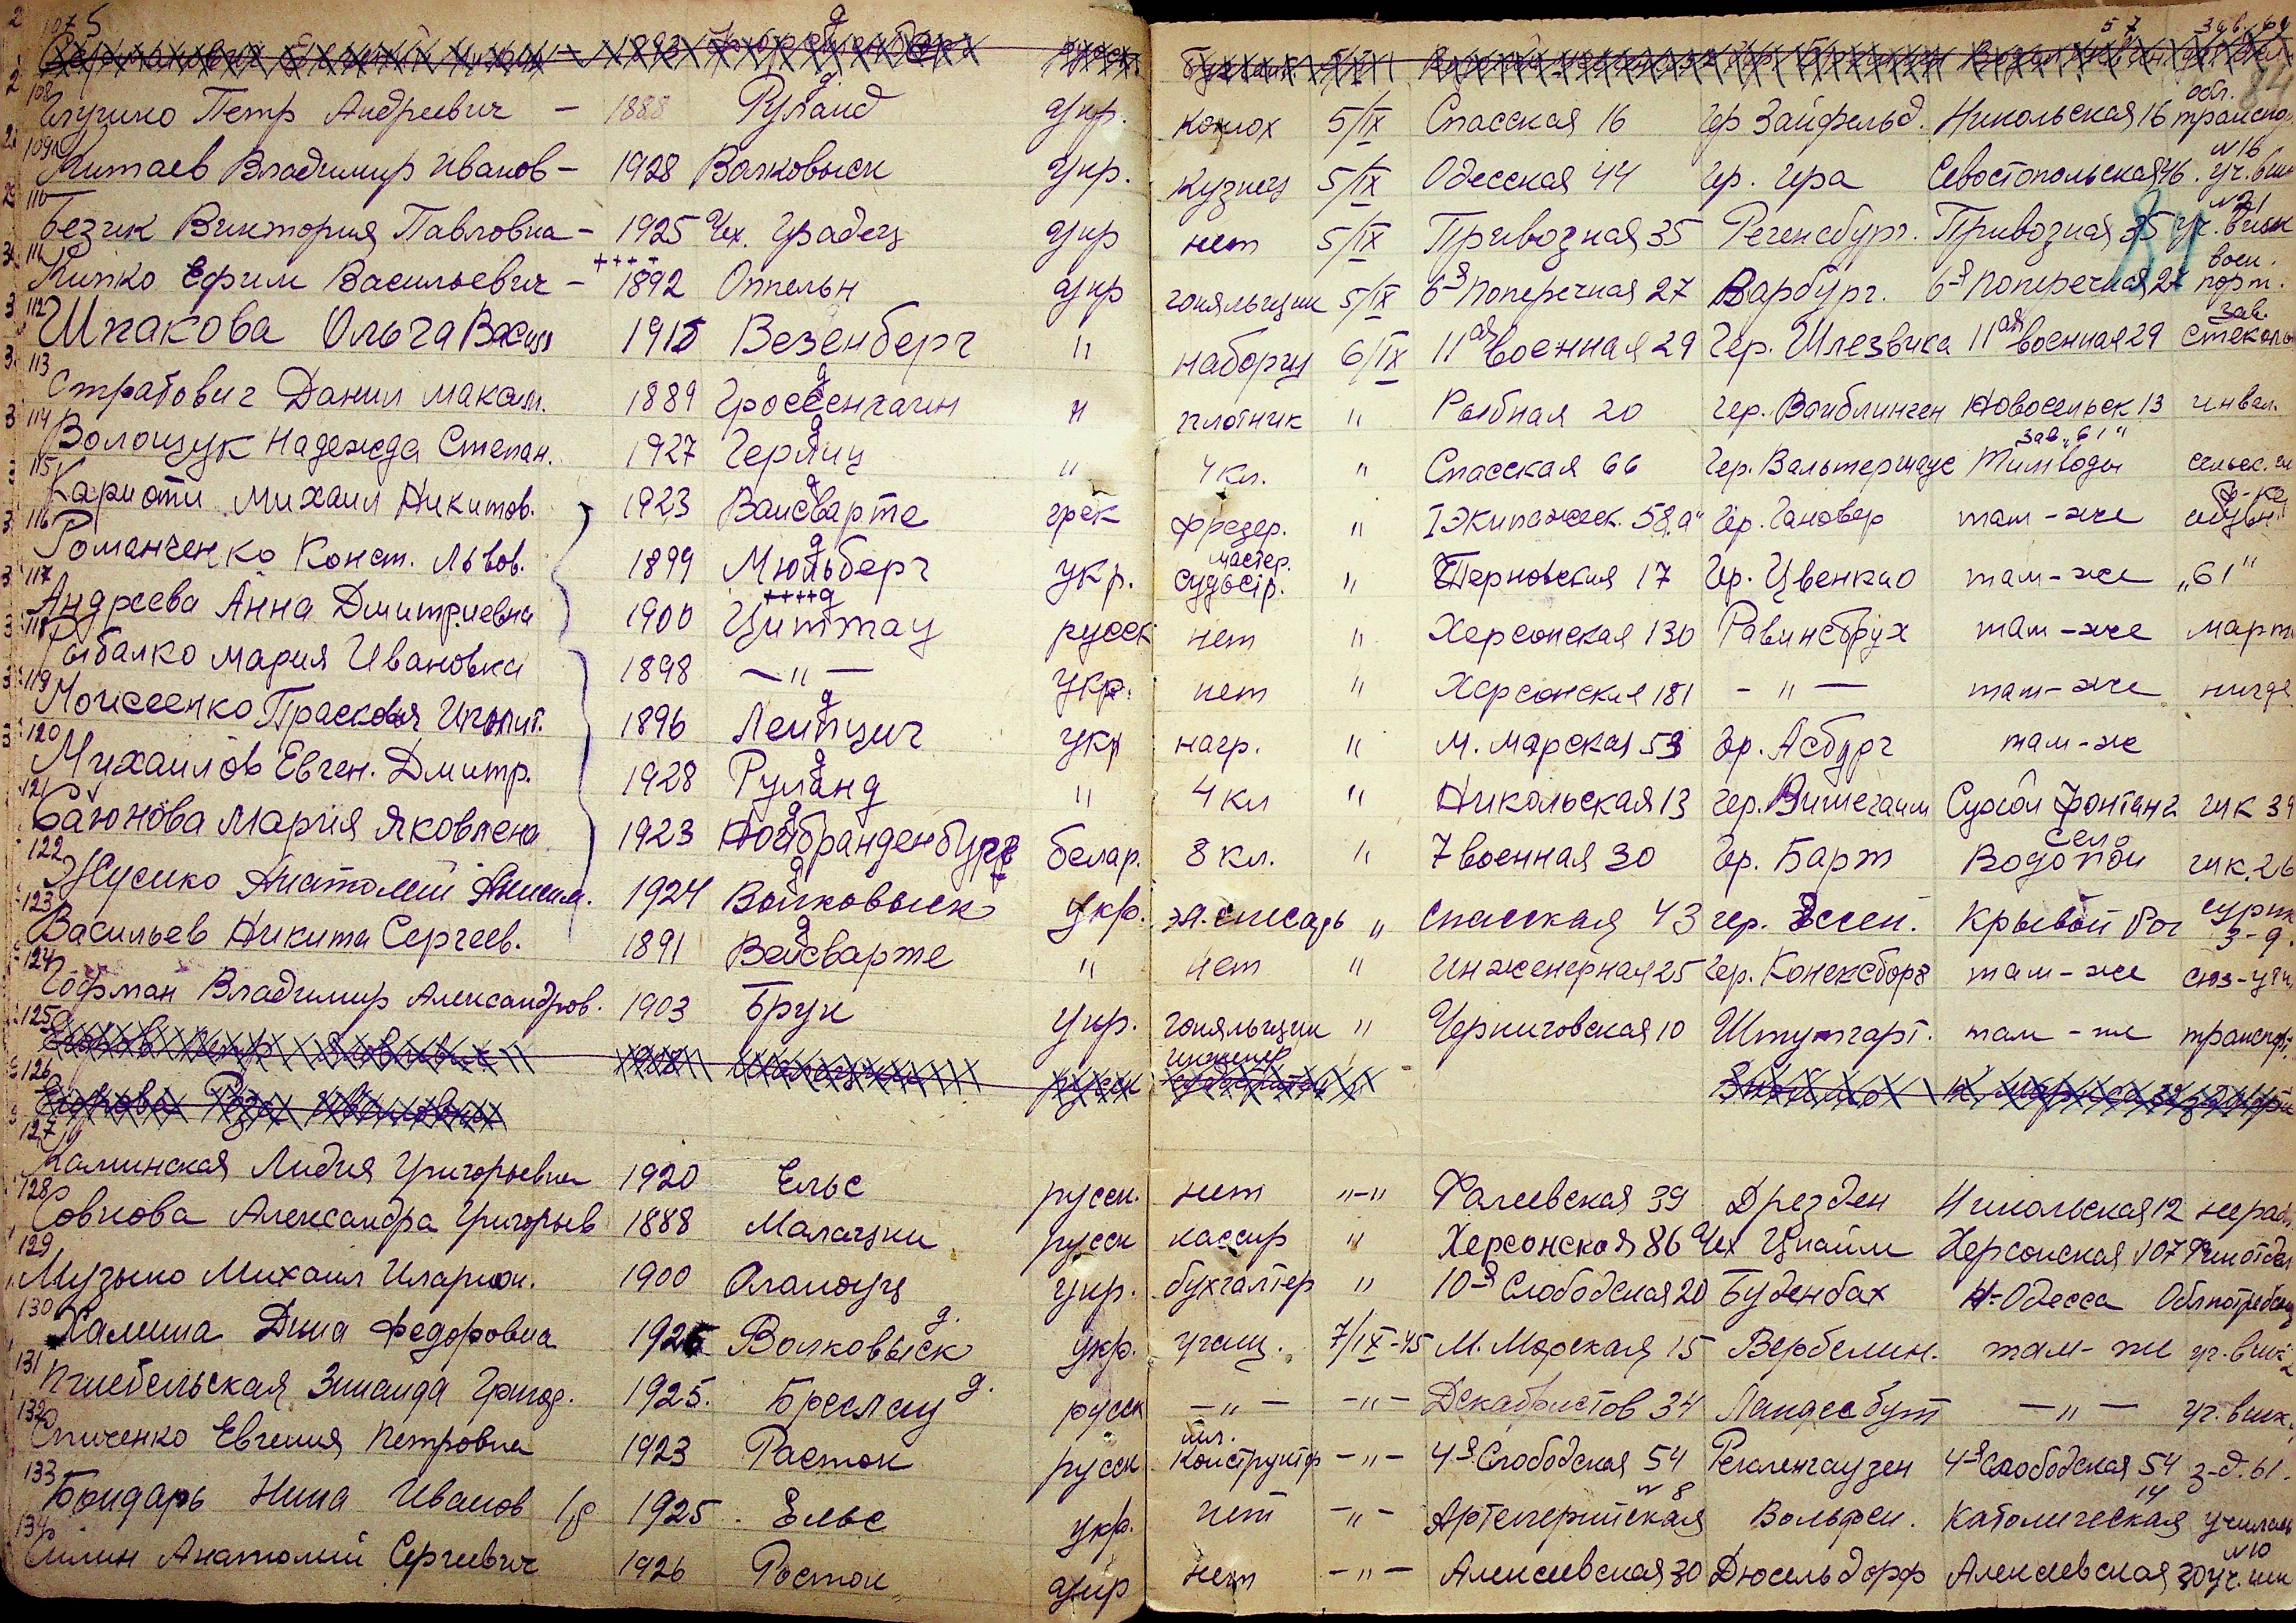 108 Глушко Петр Андреевич — 1888 Руланд укр. коклох 5/IX Спасская 16 Гр Зайфельд. Никольская 16 обл. транспор
109 Китаев Владимир Иванов — 1928 Волковыск укр. кузнец 5/IX Одесская 44 Гр. Гера Севостопольская 46. N16 уч.
110 Безик Виктория Павловна — 1925 Чех. Градец укр нет 5/IX Привозная 35 Регенсбург. Привозная 35 N21 уч.
111 Липко Ефим Васильевич — 1892 Оппельн укр гояльщик 5/IX 6-я Поперечная 27 Варбург. 6-я Поперечная 27 воен. порт.
112 Шпакова Ольга Васил 1915 Везенберг " наборщ 6/IX 11ая военная 29 Гер. Шлезвика 11ая военная 29 зав. стеколь
113 Стратович Данил Максим. 1889 Гроссенгаин " плотник " Рыбная 20 Гер. Вайблинген Новосельск 13 инвал.
114 Волощук Надежда Степан. 1927 Герлиц " 4 кл. " Спасская 66 Гер. Вальтерщаус зав. "61"
115 Кариоти Михаил Никитов. 1923 Ваисварте грек фрезер. " 1 Экипажеск. 58 "а" Гер. Гановер там-же
116 Романченко Конст. Львов. 1899 Мюльберг укр. мастер. судостр. " Терновская 17 Гер. Цвенкао там-же "61"
117 Андреева Анна Дмитриевна 1900 Циттау русск нет " Херсонская 130 Равинсбрух там-же март
118 Рыбалко Мария Ивановна 1898 — " — укр. нет " Херсонская 181 — " — там-же нигде
119 Моисеенко Прасковья Иполит. 1896 Леипциг укр нагр. " М. Марская 53 Гер. Асбург там-ж
120 Михаилов Евген. Дмитр. 1928 Руланд " 4 кл " Никольская 13 Гер. Витегаим Сухой Фонтан 2 шк 39
121 Баюнова Мария Яковлена 1923 Ноибранденбург белар. 8 кл. " 7 военная 30 Гер. Барт село Водопои шк. 26
122 Жусико Анатолий Аким. 1924 Волковыск укр. эл. слесарь " Спасская 43 гер. Эссен. Кривой Рог
123 Васильев Никита Сергеев. 1891 Веисварте " нет " Инженерная 25 Гер. Конексборг там-же
124 Гофман Владимир Александров. 1903 Брук укр. гояльщик " Черниговская 10 Штутгарт. там-же транспорт.
125
126
127 Каминская Лидия Григорьевна 1920 Ельс русск. нет "-" Фалеевская 39 Дрезден Никольская 12 нераб.
128 Совкова Александра Григорьев 1888 Малацки русск кассир " Херсонская 86 Чех Цнайм Херсонская 107 Финотдел
129 Музыко Михаил Иларион. 1900 Оламоуц укр. бухгалтер " 10-я Слободская 20 Буденбах Н-Одесса Облпотребсоюз
130 Халина Дина Федоровна 1925 Волковыск укр. учащ. 7/IX-45 М. Морская 15 Вербелин. там-же
131 Пшебельская Зинаида Григор. 1925. Бреслау русск — " — — " — Декабристов 34 Ландесбут — " —
132 Спиченко Евгения Петровна 1923 Расток русск конструктор — " — 4-я Слободская 54 Реклингаузен 4-я Слободская 54 з-д. 61.
133 Бондарь Нина Иванов 1925. Ельс укр. нет — " — Артелерийская N 8 Вольфен. Католическая 14
134 Силин Анатолий Сергеевич 1926 Росток укр нет — " — Алексеевская 30 Дюсельдорф Алексеевская 30 N10